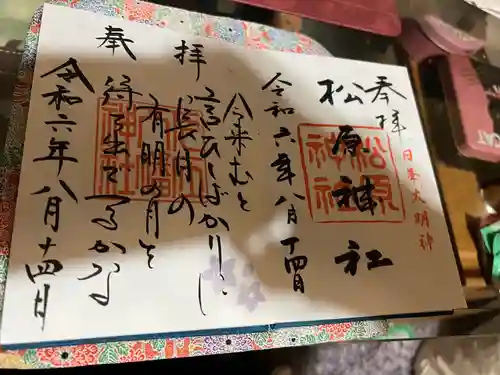 奉拝
日吉大明神
松原神社
松原神社
令和六年八月十四日
拝
今来むと
言ひしばかりに
長月の
有明の月を
待ち出でつるかな
奉
令和六年八月十四日